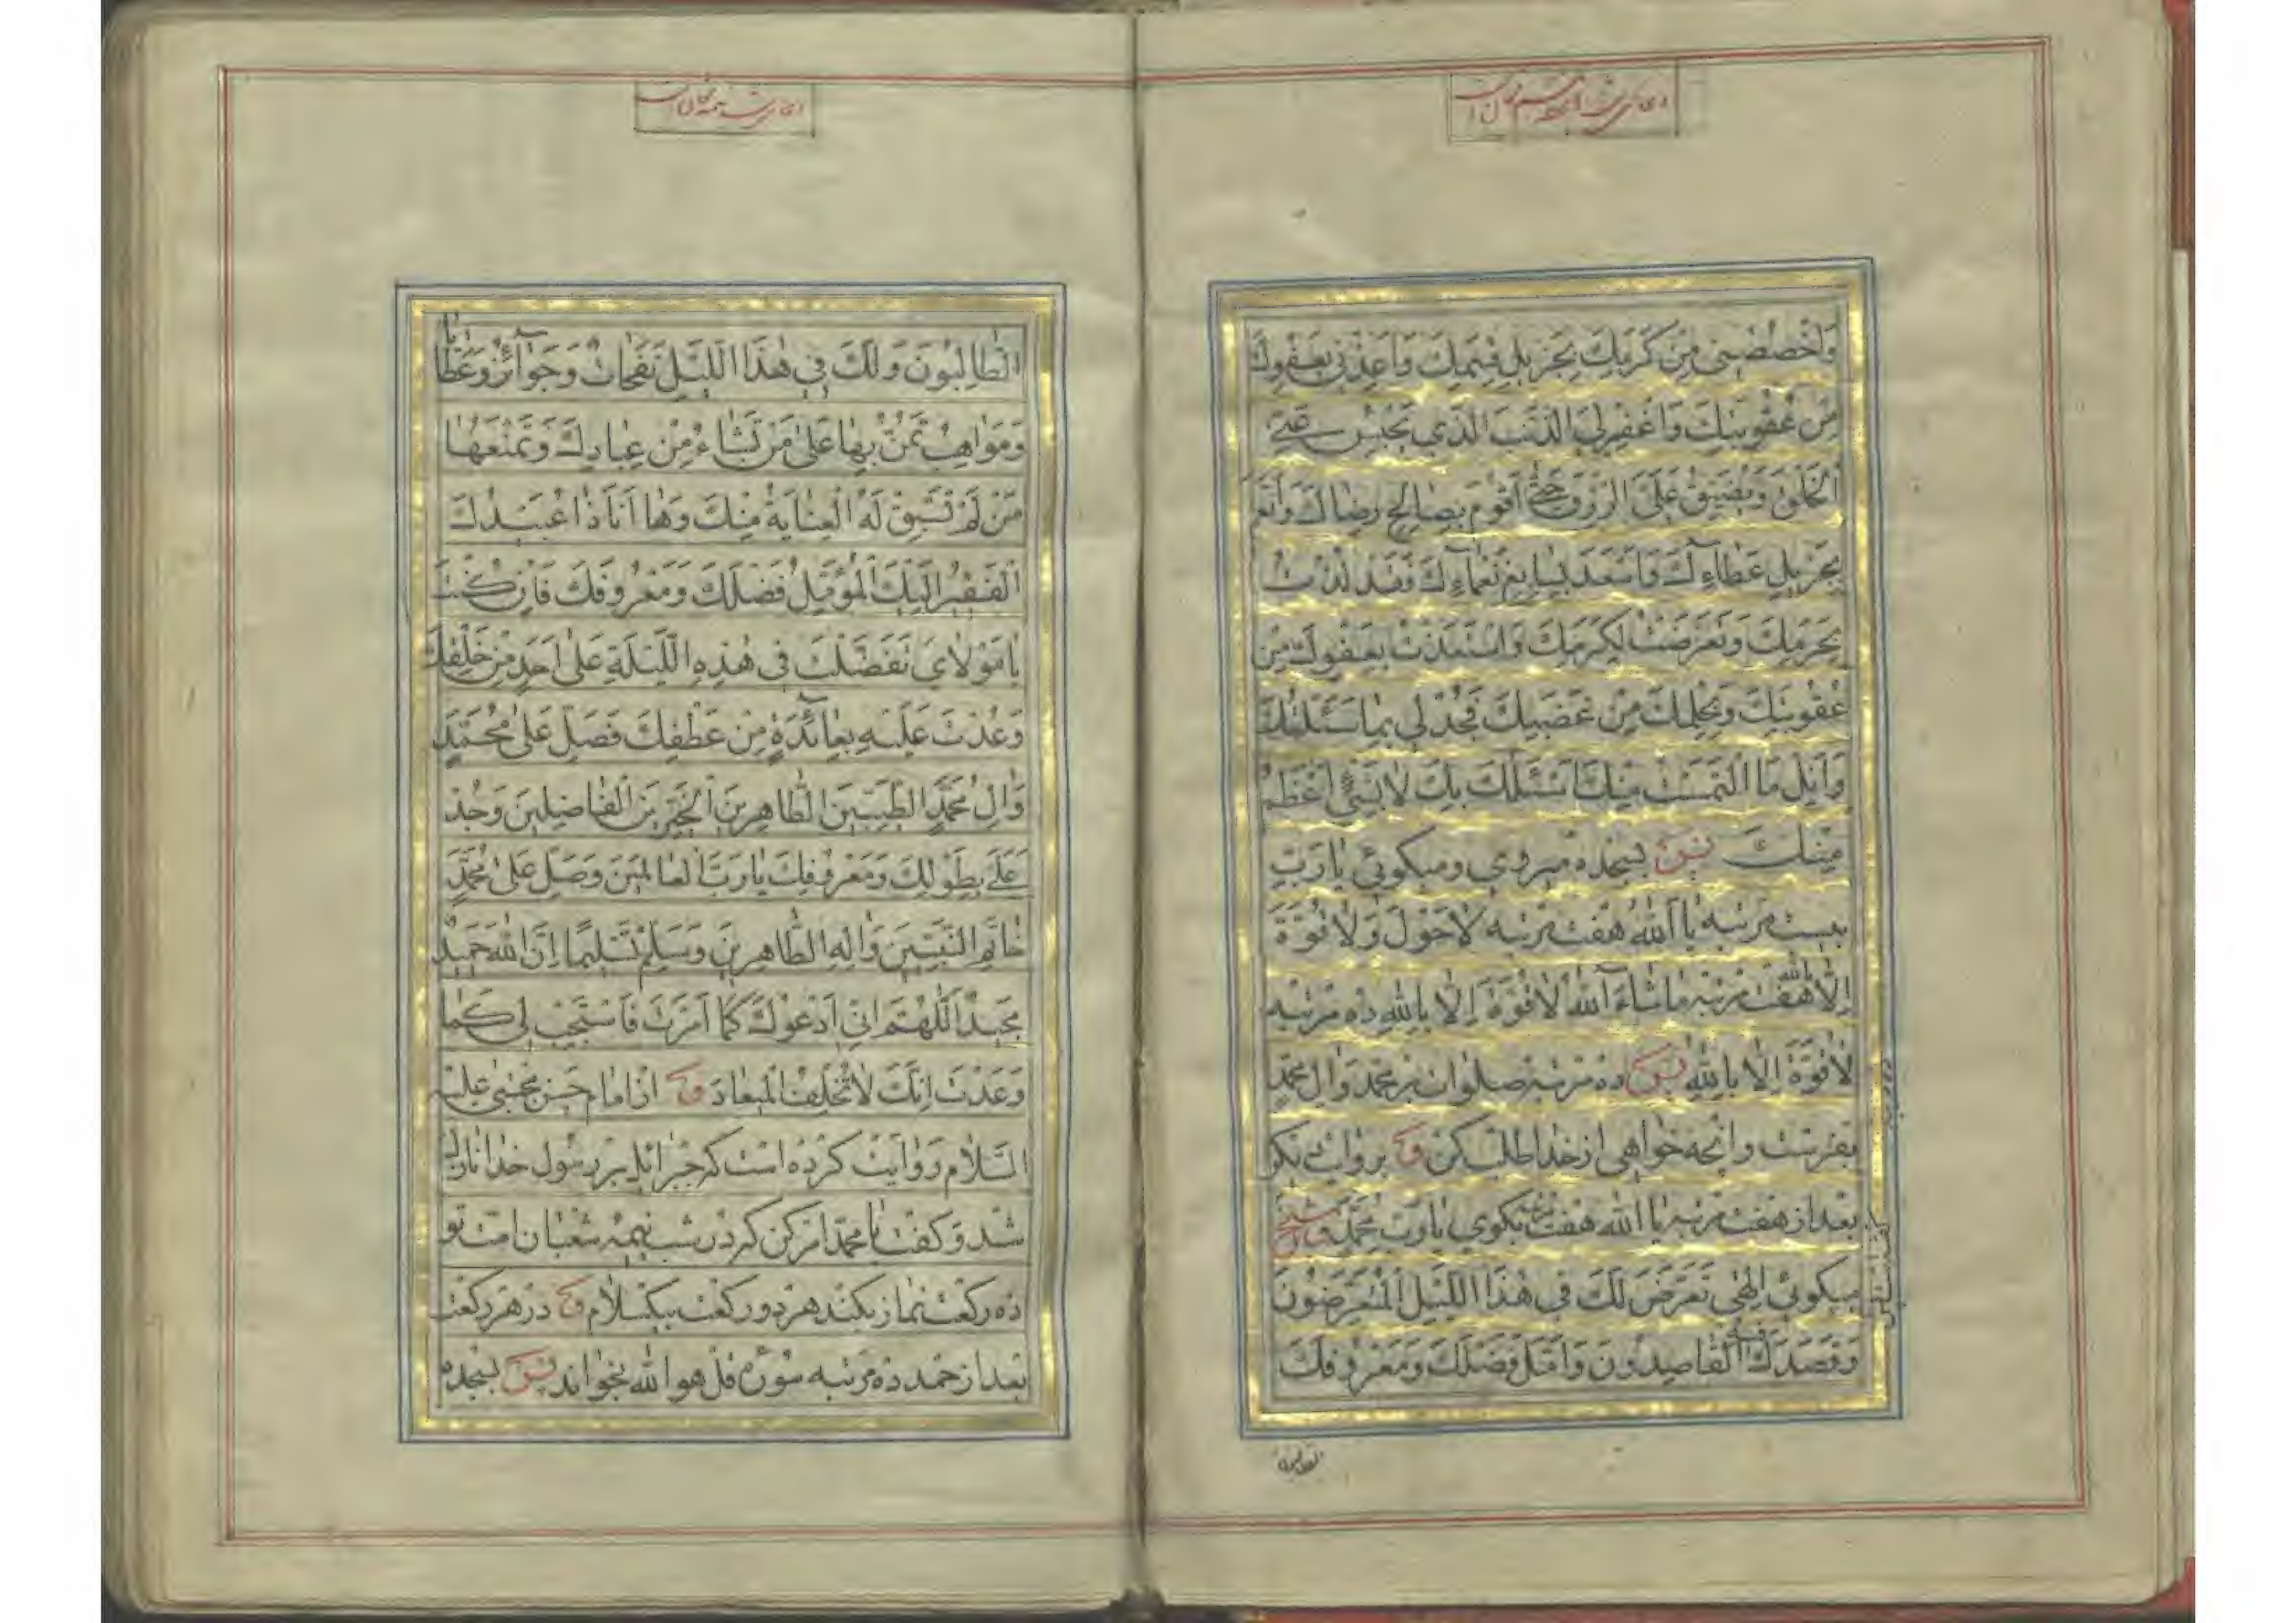 وَاخْصُصْنِی مِنْ کَرَمِكَ بِجَزِیلِ قِسَمِكَ وَاَعُوذُ بِعَفْوِكَ
مِنْ عُقُوبَتِكَ وَاغْفِرْلِیَ الذَّنْبَ الَّذِی یَحْبِسُ عَنِّی
الْخُلُقَ وَیُضَیِّقُ عَلَیَّ الرِّزْقَ حَتّٰی اَقُومَ بِصَالِحِ رِضَاكَ وَاَنْعَمَ
بِجَزِیلِ عَطَاءِكَ وَاَسْعَدَ بِسَابِغِ نَعْمَاءِكَ فَقَدْ لُذْتُ
بِحَرَمِكَ وَتَعَرَّضْتُ لِکَرَمِكَ وَاسْتَعَذْتُ بِعَفْوِكَ مِنْ
عُقُوبَتِكَ وَبِحِلْمِكَ مِنْ غَضَبِكَ فَجُدْ لِی بِمَا سَئَلْتُكَ
وَاَنِلْ مَا الْتَمَسْتُ مِنْكَ اَسْئَلُكَ بِكَ لَا بِشَیْءٍ اَعْظَمُ
مِنْكَ پس بسجده میروی ومیکوئی یَا رَبِّ
بیست مرتبه یَا اَللّٰهُ هفت مرتبه لَا حَوْلَ وَلَا قُوَّةَ
اِلَّا بِاللّٰهِ هفت مرتبه مَا شَاءَ اللّٰهُ لَا قُوَّةَ اِلَّا بِاللّٰهِ ده مرتبه
لَا قُوَّةَ اِلَّا بِاللّٰهِ پس ده مرتبه صلوات بر محمد وال محمد
بفرست وانچه خواهی از خدا طلب کن و بروایت دیکر
بعد از هفت مرتبه یا الله هفت مرتبه بکوی یَا رَبَّ مُحَمَّدٍ
میکوئی اِلٰهِی تَعَرَّضَ لَكَ فِی هٰذَا اللَّیْلِ الْمُتَعَرِّضُونَ
وَقَصَدَكَ الْقَاصِدُونَ وَاَمَّلَ فَضْلَكَ وَمَعْرُوفَكَ
الطَّالِبُونَ
الطَّالِبُونَ وَلَكَ فِی هٰذَا اللَّیْلِ نَفَحَاتٌ وَجَوَآئِزُ وَعَطَایَا
وَمَوَاهِبُ تَمُنُّ بِهَا عَلٰی مَنْ تَشَاءُ مِنْ عِبَادِكَ وَتَمْنَعُهَا
مَنْ لَمْ تَسْبِقْ لَهُ الْعِنَایَةُ مِنْكَ وَهَا اَنَا ذَا عُبَیْدُكَ
الْفَقِیرُ اِلَیْكَ الْمُؤَمِّلُ فَضْلَكَ وَمَعْرُوفَكَ فَاِنْ کُنْتَ
یَا مَوْلَایَ تَفَضَّلْتَ فِی هٰذِهِ اللَّیْلَةِ عَلٰی اَحَدٍ مِنْ خَلْقِكَ
وَعُدْتَ عَلَیْهِ بِعَآئِدَةٍ مِنْ عَطْفِكَ فَصَلِّ عَلٰی مُحَمَّدٍ
وَاٰلِ مُحَمَّدٍ الطَّیِّبِینَ الطَّاهِرِینَ الْخَیِّرِینَ الْفَاضِلِینَ وَجُدْ
عَلَیَّ بِطَوْلِكَ وَمَعْرُوفِكَ یَا رَبَّ الْعَالَمِینَ وَصَلِّ عَلٰی مُحَمَّدٍ
خَاتَمِ النَّبِیِّینَ وَاٰلِهِ الطَّاهِرِینَ وَسَلِّمْ تَسْلِیمًا اِنَّ اللّٰهَ حَمِیدٌ
مَجِیدٌ اَللّٰهُمَّ اِنِّی اَدْعُوكَ کَمَا اَمَرْتَ فَاسْتَجِبْ لِی کَمَا
وَعَدْتَ اِنَّكَ لَا تُخْلِفُ الْمِیعَادَ و از امام حسن مجتبی علیه
السلام روایت کرده است که جبرائیل بر رسول خدا نازل
شد و کفت یا محمد امر کن که در شب نیمه شعبان امت تو
ده رکعت نماز بکند هر دو رکعت بیکسلام و در هر رکعت
بعد از حمد ده مرتبه سوره قل هو الله بخواند پس بسجده